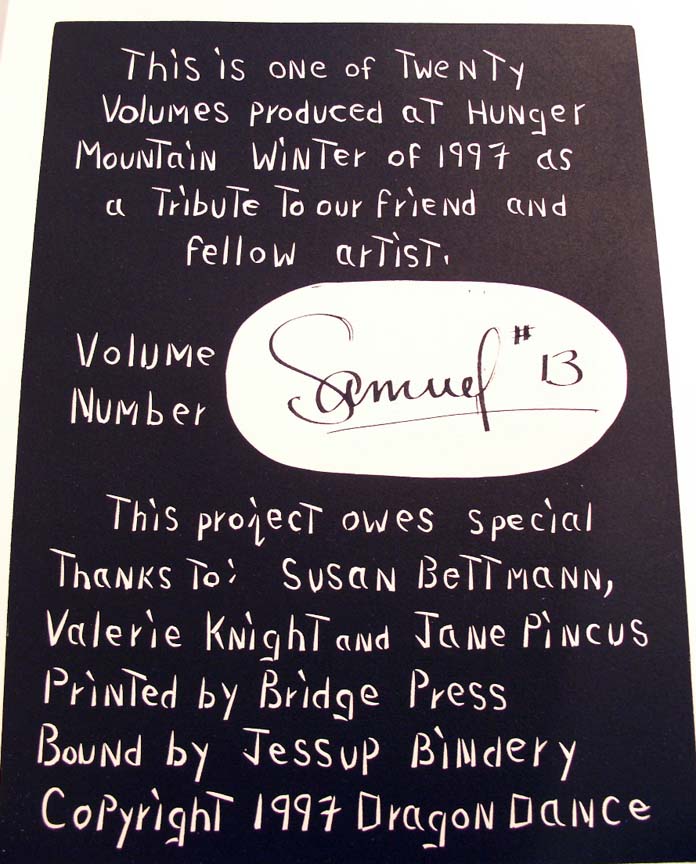 This is one of Twenty
Volumes produced at Hunger
Mountain Winter of 1997 as
a Tribute To our friend and
fellow artist.
Volume
Number
Samuel #13
This project owes special
Thanks To: Susan Bettmann,
Valerie Knight and Jane Pincus
Printed by Bridge Press
Bound by Jessup Bindery
Copyright 1997 Dragon Dance